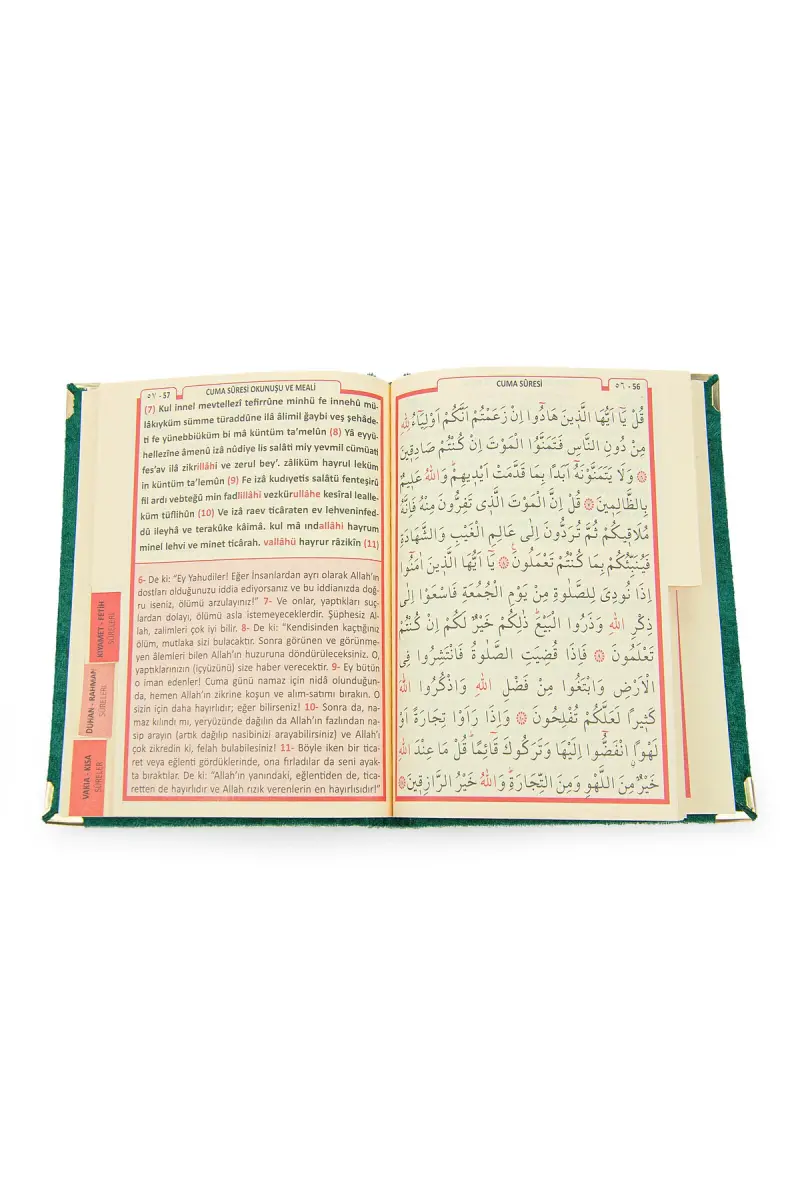 ٥٧ - 57
CUMA SÛRESİ OKUNUŞU VE MEALİ
(7) Kul innel mevtellezî tefirrûne minhü fe innehü mü-
lâkıyküm sümme türaddûne ilâ âlimil ğaybi veş şehâde-
ti fe yünebbiüküm bi mâ küntüm ta’melûn (8) Yâ eyyü-
hellezîne âmenû izâ nûdiye lis salâti miy yevmil cümüati
fes’av ilâ zikrillâhi ve zerul bey’. zâliküm hayrul leküm
in küntüm ta’lemûn (9) Fe izâ kudıyetis salâtü fenteşirû
fil ardı vebteğû min fadlillâhi vezkürullahe kesîral lealle-
küm tüflihûn (10) Ve izâ raev ticâraten ev lehveninfed-
dû ileyhâ ve terakûke kâimâ. kul mâ ındallâhi hayrum
minel lehvi ve minet ticârah. vallâhü hayrur râzikîn (11)
6- De ki: “Ey Yahudiler! Eğer İnsanlardan ayrı olarak Allah’ın
dostları olduğunuzu iddia ediyorsanız ve bu iddianızda doğ-
ru iseniz, ölümü arzulayınız!” 7- Ve onlar, yaptıkları suç-
lardan dolayı, ölümü asla istemeyeceklerdir. Şüphesiz Al-
lah, zalimleri çok iyi bilir. 8- De ki: “Kendisinden kaçtığınız
ölüm, mutlaka sizi bulacaktır. Sonra görünen ve görünme-
yen âlemleri bilen Allah’ın huzuruna döndürüleceksiniz. O,
yaptıklarınızın (içyüzünü) size haber verecektir. 9- Ey bütün
o iman edenler! Cuma günü namaz için nidâ olunduğun-
da, hemen Allah’ın zikrine koşun ve alım-satımı bırakın. O
sizin için daha hayırlıdır; eğer bilirseniz! 10- Sonra da, na-
maz kılındı mı, yeryüzünde dağılın da Allah’ın fazlından na-
sip arayın (artık dağılıp nasibinizi arayabilirsiniz) ve Allah’ı
çok zikredin ki, felah bulabilesiniz! 11- Böyle iken bir tica-
ret veya eğlenti gördüklerinde, ona fırladılar da seni ayak-
ta bıraktılar. De ki: “Allah’ın yanındaki, eğlentiden de, tica-
retten de hayırlıdır ve Allah rızık verenlerin en hayırlısıdır!”
KIYAMET - FETİH
SÛRELERİ
DUHAN - RAHMAN
SÛRELERİ
VAKIA - KISA
SÛRELER
CUMA SÛRESİ
٥٦ - 56
قُلْ يَٓا اَيُّهَا الَّذ۪ينَ هَادُٓوا اِنْ زَعَمْتُمْ اَنَّكُمْ اَوْلِيَٓاءُ لِلّٰهِ
مِنْ دُونِ النَّاسِ فَتَمَنَّوُا الْمَوْتَ اِنْ كُنْتُمْ صَادِق۪ينَ
۞ وَلَا يَتَمَنَّوْنَهُٓ اَبَدًا بِمَا قَدَّمَتْ اَيْد۪يهِمْۜ وَاللّٰهُ عَل۪يمٌ
بِالظَّالِم۪ينَ ۞ قُلْ اِنَّ الْمَوْتَ الَّذ۪ي تَفِرُّونَ مِنْهُ فَاِنَّهُ
مُلَاق۪يكُمْ ثُمَّ تُرَدُّونَ اِلٰى عَالِمِ الْغَيْبِ وَالشَّهَادَةِ
فَيُنَبِّئُكُمْ بِمَا كُنْتُمْ تَعْمَلُونَ ۞ يَٓا اَيُّهَا الَّذ۪ينَ اٰمَنُٓوا
اِذَا نُودِيَ لِلصَّلٰوةِ مِنْ يَوْمِ الْجُمُعَةِ فَاسْعَوْا اِلٰى
ذِكْرِ اللّٰهِ وَذَرُوا الْبَيْعَۜ ذٰلِكُمْ خَيْرٌ لَكُمْ اِنْ كُنْتُمْ
تَعْلَمُونَ ۞ فَاِذَا قُضِيَتِ الصَّلٰوةُ فَانْتَشِرُوا فِي
الْاَرْضِ وَابْتَغُوا مِنْ فَضْلِ اللّٰهِ وَاذْكُرُوا اللّٰهَ
كَث۪يرًا لَعَلَّكُمْ تُفْلِحُونَ ۞ وَاِذَا رَاَوْا تِجَارَةً اَوْ
لَهْوًاۨ انْفَضُّٓوا اِلَيْهَا وَتَرَكُوكَ قَٓائِمًاۜ قُلْ مَا عِنْدَ اللّٰهِ
خَيْرٌ مِنَ اللَّهْوِ وَمِنَ التِّجَارَةِۜ وَاللّٰهُ خَيْرُ الرَّازِق۪ينَ ۞